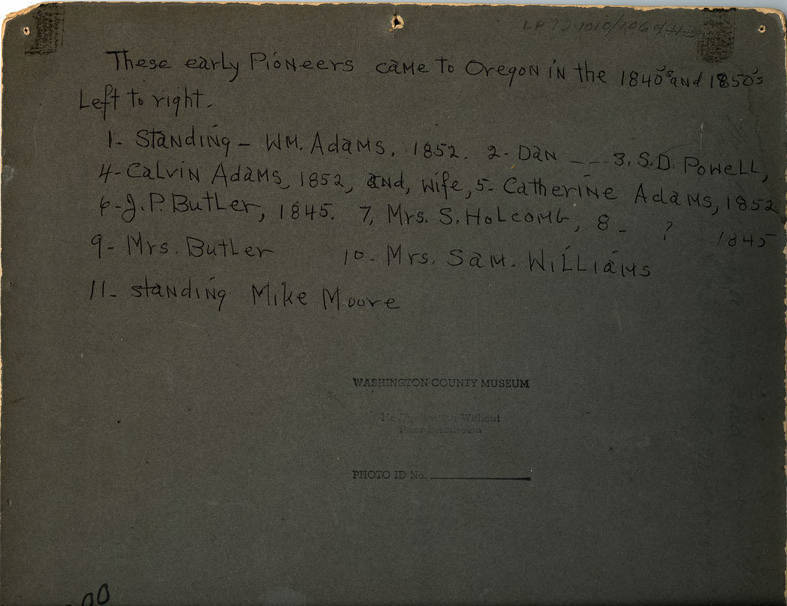 These early Pioneers came to Oregon in the 1840's and 1850's
Left to right.
1- Standing - WM. Adams, 1852. 2- Dan -- 3. S.D. Powell,
4- Calvin Adams, 1852, and, wife, 5- Catherine Adams, 1852
6- J.P. Butler, 1845. 7, Mrs. S. Holcomb, 8- ? 1845
9- Mrs. Butler 10- Mrs. Sam. Williams
11- standing Mike Moore
WASHINGTON COUNTY MUSEUM
Without
PHOTO ID No.